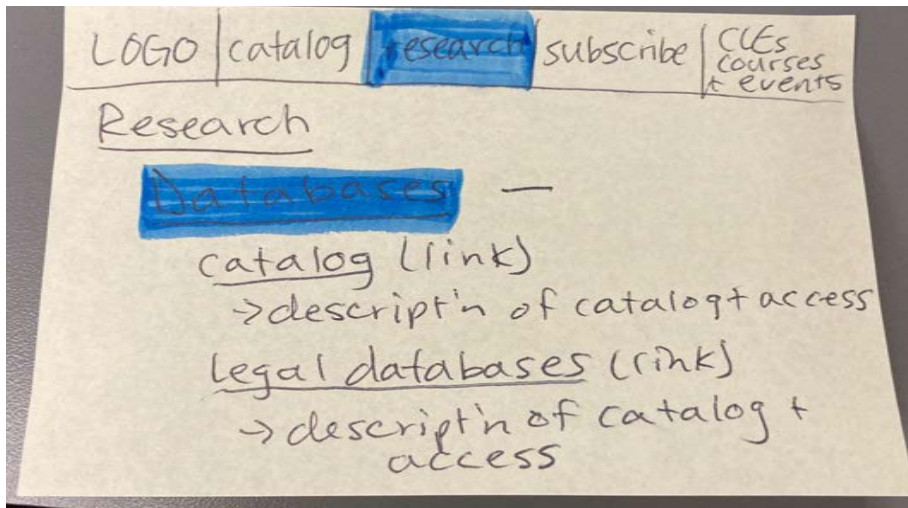 LOGO | catalog | research | subscribe | CLEs
courses
+ events
Research
Databases —
catalog (link)
→ descript'n of catalog + access
legal databases (link)
→ descript'n of catalog +
access